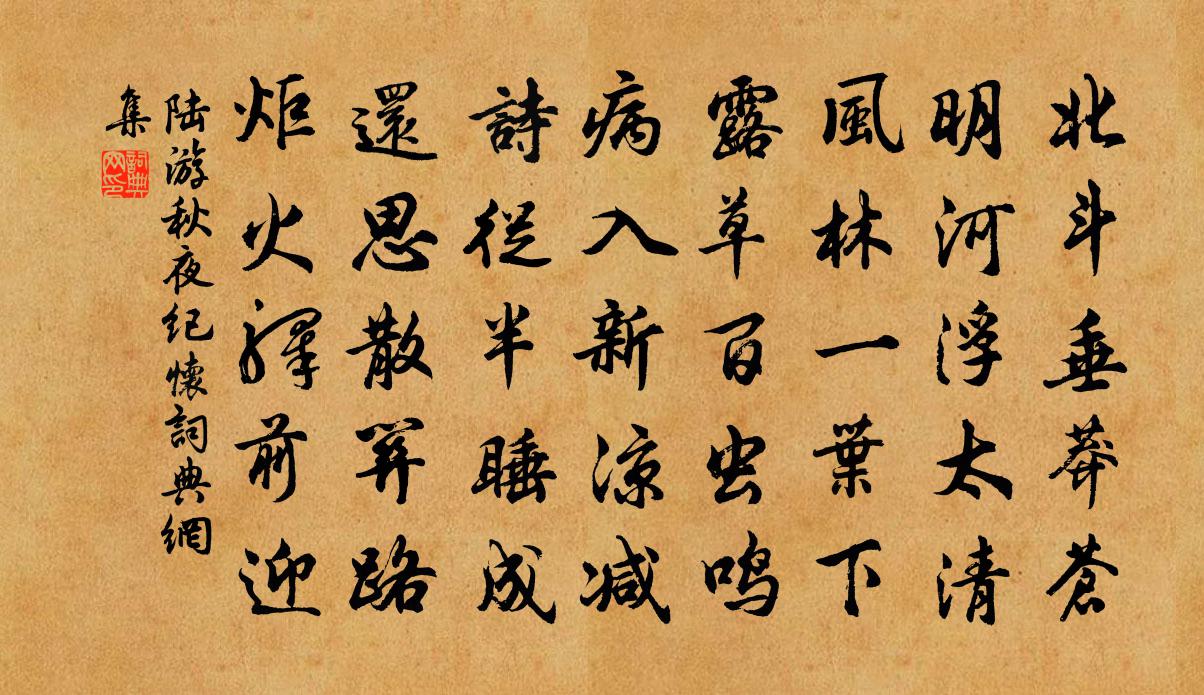 北斗垂莽蒼
明河浮太清
風林一葉下
露草百虫鳴
病入新涼减
詩從半睡成
還思散關路
炬火驛前迎
陆游秋夜紀懷詞典網
集
詞典
网印